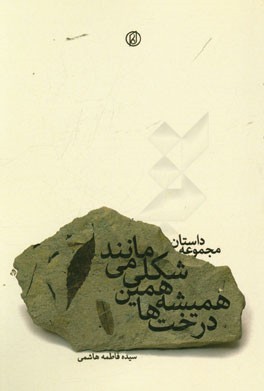 مجموعه داستان
درخت‌ها
همیشه
همین
شکلی می
مانند
سیده فاطمه هاشمی